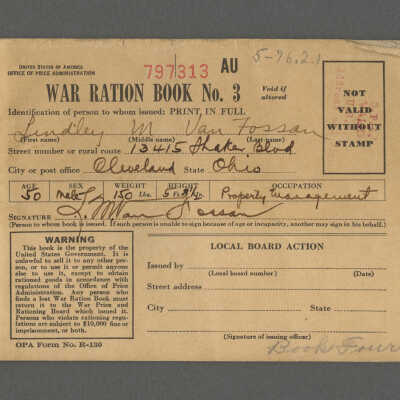 5-76.2.1
UNITED STATES OF AMERICA
OFFICE OF PRICE ADMINISTRATION
797313 AU
WAR RATION BOOK No. 3
Void if
altered
NOT
VALID
WITHOUT
STAMP
Identification of person to whom issued: PRINT IN FULL
Lindley M. Van Fossan
(First name) (Middle name) (Last name)
Street number or rural route 13415 Shaker Blvd
City or post office Cleveland State Ohio
AGE SEX WEIGHT HEIGHT OCCUPATION
50 Male 150 Lbs. 5 Ft. In. Property Management
SIGNATURE L. M. Van Fossan
(Person to whom book is issued. If such person is unable to sign because of age or incapacity, another may sign in his behalf.)
WARNING
This book is the property of the
United States Government. It is
unlawful to sell it to any other per-
son, or to use it or permit anyone
else to use it, except to obtain
rationed goods in accordance with
regulations of the Office of Price
Administration. Any person who
finds a lost War Ration Book must
return it to the War Price and
Rationing Board which issued it.
Persons who violate rationing regu-
lations are subject to $10,000 fine or
imprisonment, or both.
OPA Form No. R-130
LOCAL BOARD ACTION
Issued by
(Local board number) (Date)
Street address
City State
(Signature of issuing officer)
Book Four